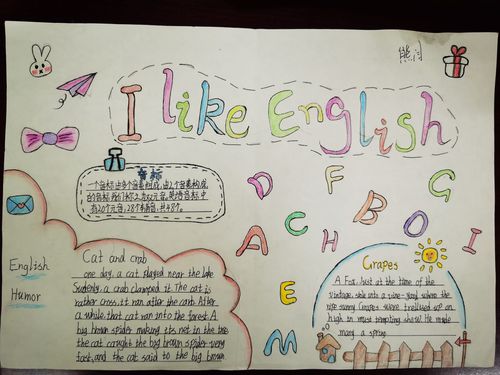 熊闫
I like English
音标
一个音标由多个音素构成,由2个音素构成
的音标,我们称之为双元音。英语音标中
有20个元音,28个辅音,共48个。
D F G
A C H B O I
E
M
English
Humor
Cat and crab
one day, a cat played near the lake
Suddenly, a crab clamped it. The cat is
rather cross, it ran after the crab. After
a while, that cat ran into the forest. A
big brown spider making its net in the tree
the cat caught the big brown spider very
fast, and the cat said to the big brown
Grapes
A Fox, just at the time of the
vintage, stole into a vine-yard where the
ripe sunny Grapes were trellised up on
high in most tempting show. He made
many a spring